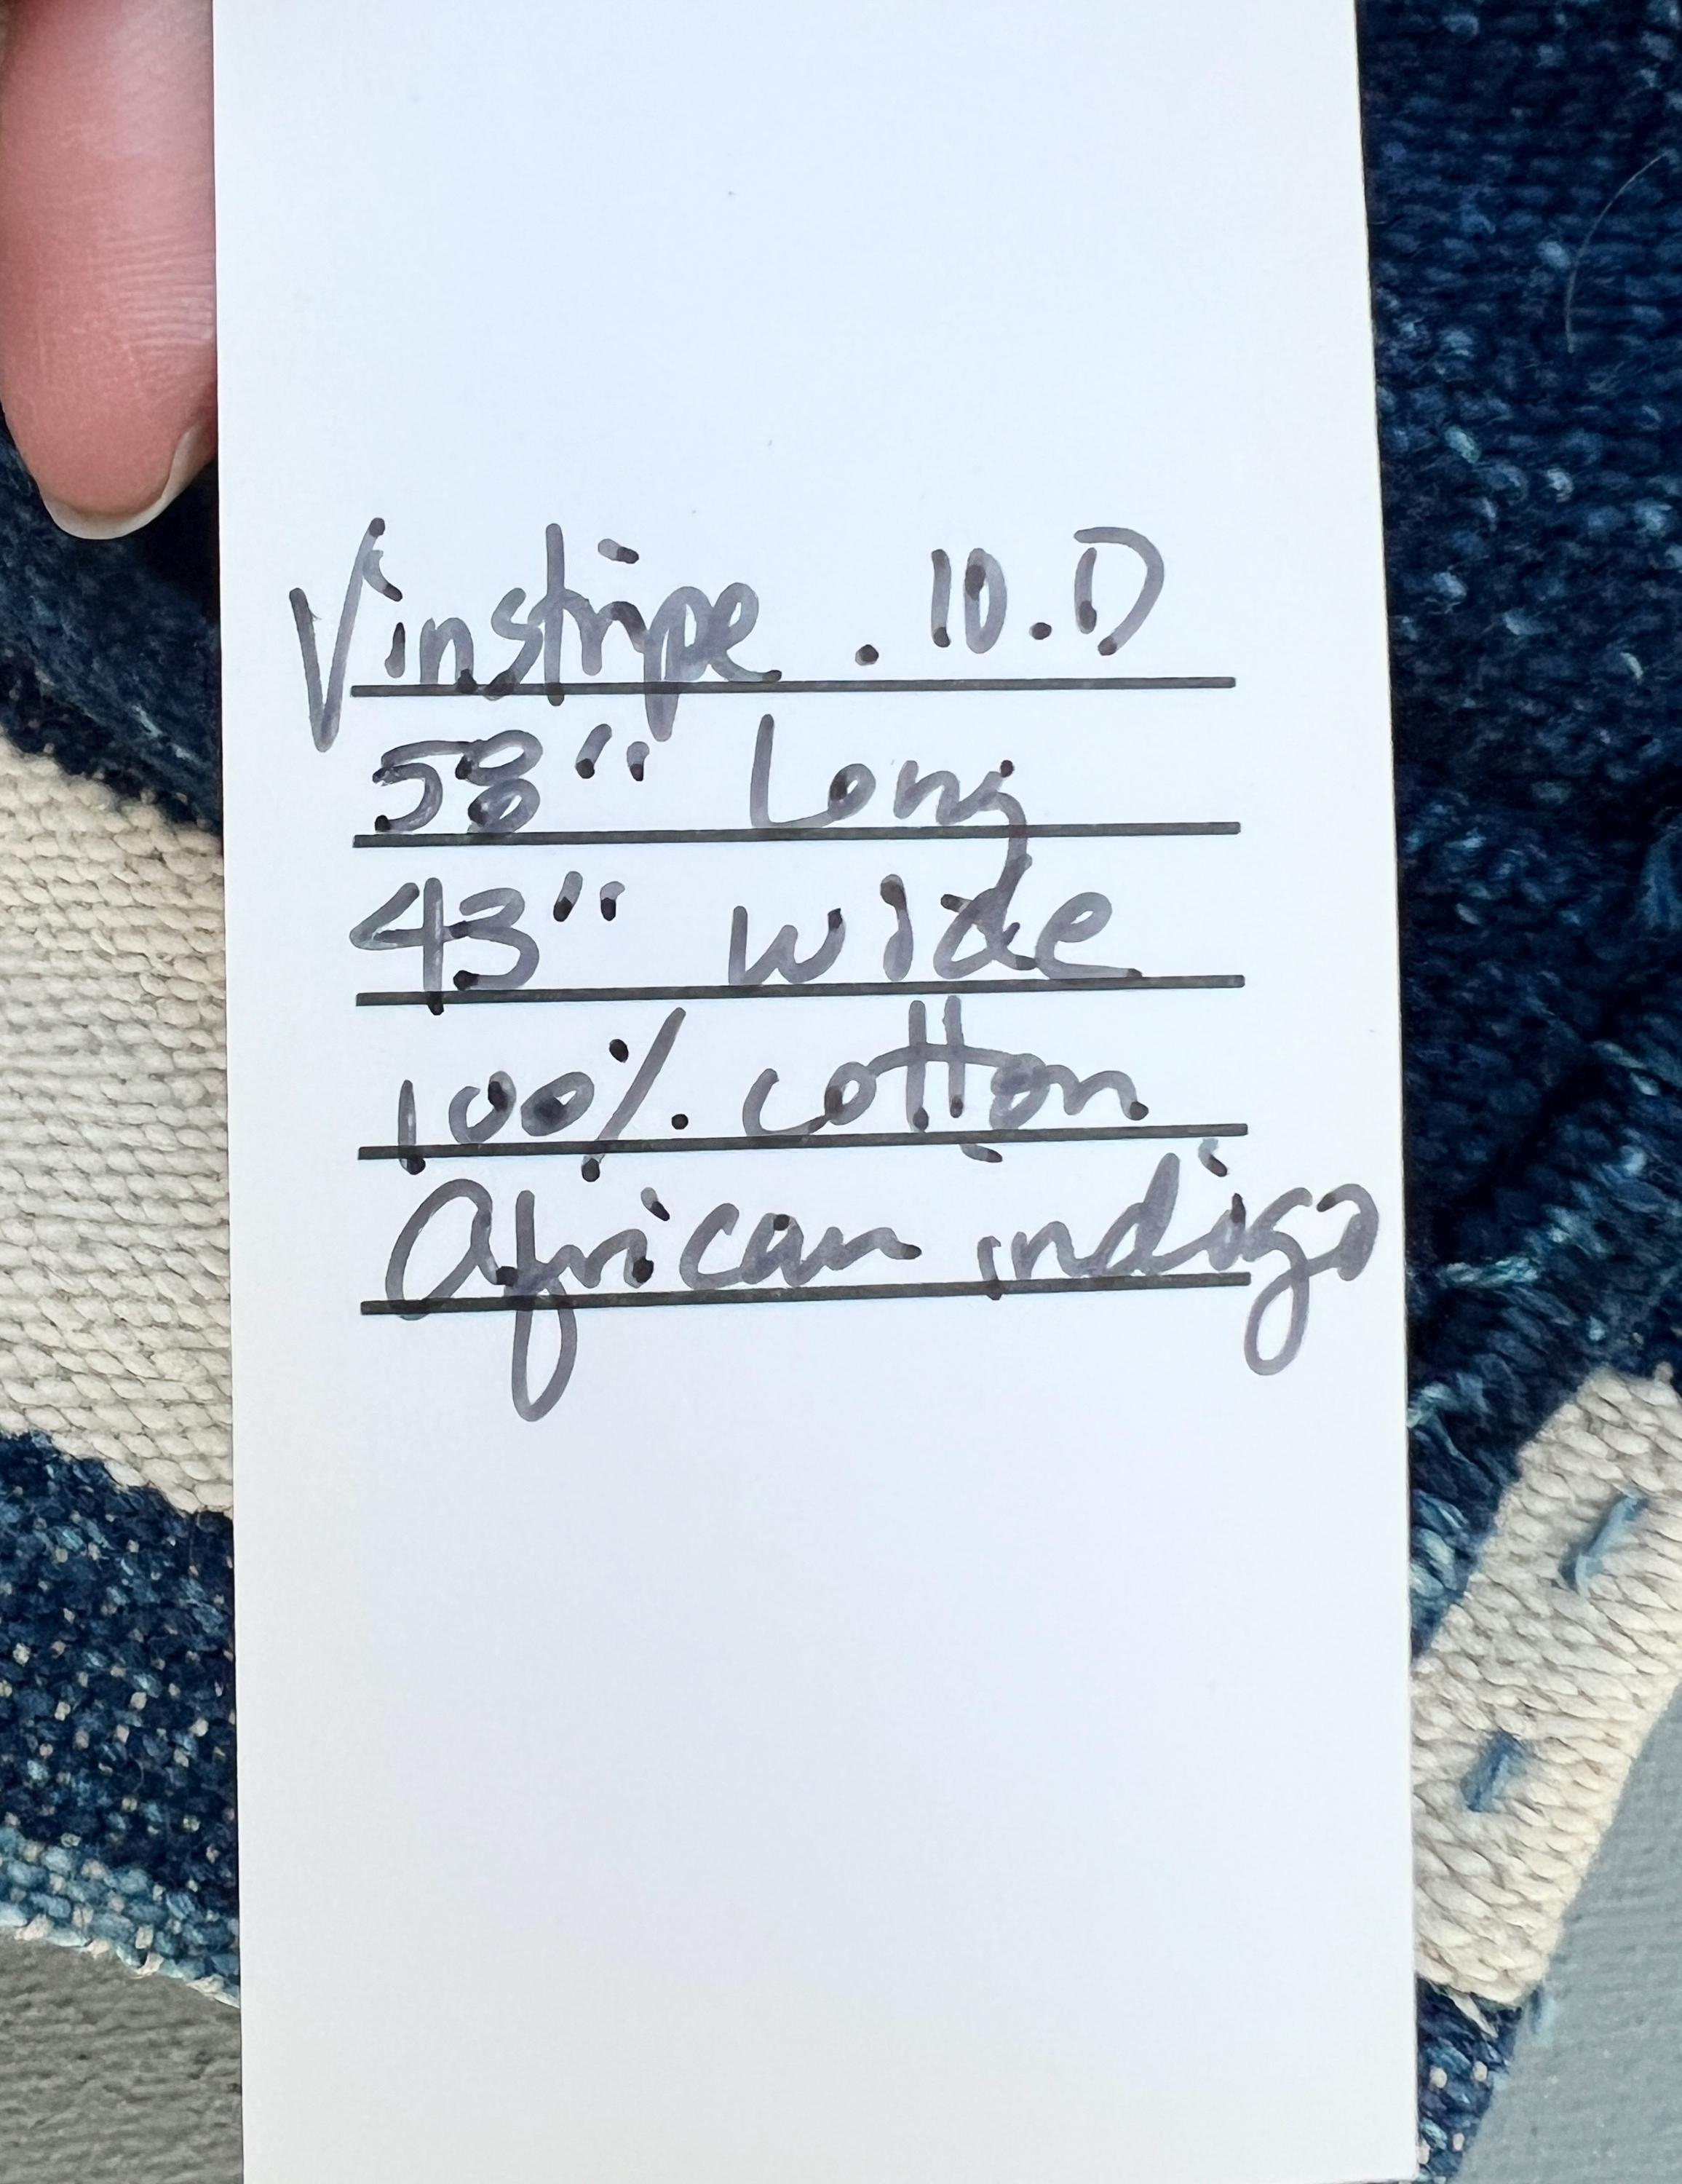 Vinstripe . 10.D
58" Long
43" wide
100% cotton
African indigo